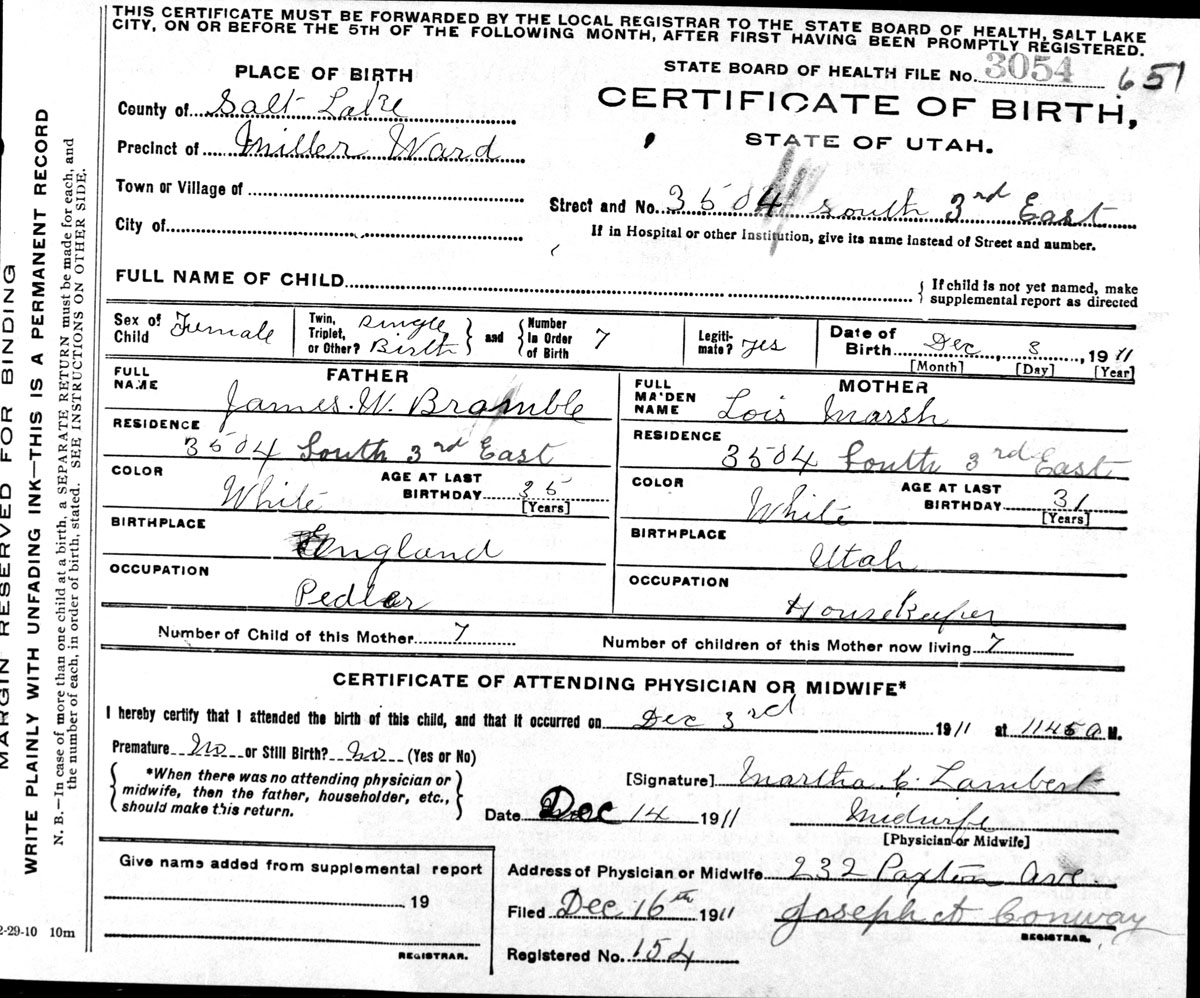 THIS CERTIFICATE MUST BE FORWARDED BY THE LOCAL REGISTRAR TO THE STATE BOARD OF HEALTH, SALT LAKE
CITY, ON OR BEFORE THE 5TH OF THE FOLLOWING MONTH, AFTER FIRST HAVING BEEN PROMPTLY REGISTERED.
PLACE OF BIRTH
STATE BOARD OF HEALTH FILE No. 3054 651
County of Salt Lake
CERTIFICATE OF BIRTH,
STATE OF UTAH.
Precinct of Miller Ward
Town or Village of
Street and No. 3504 South 3rd East
City of
If in Hospital or other Institution, give its name instead of Street and number.
FULL NAME OF CHILD
If child is not yet named, make
supplemental report as directed
Sex of Child Female
Twin, Triplet, or Other? Single Birth and Number in Order of Birth 7
Legiti-mate? yes
Date of Birth Dec, 3, 1911
[Month] [Day] [Year]
FATHER
FULL NAME James. W. Bramble
RESIDENCE
3504 South 3rd East
COLOR White AGE AT LAST BIRTHDAY 35
[Years]
BIRTHPLACE
England
OCCUPATION
Pedler
MOTHER
FULL MAIDEN NAME Lois Marsh
RESIDENCE
3504 South 3rd East
COLOR White AGE AT LAST BIRTHDAY 31
[Years]
BIRTHPLACE
Utah
OCCUPATION
Housekeeper
Number of Child of this Mother 7 Number of children of this Mother now living 7
CERTIFICATE OF ATTENDING PHYSICIAN OR MIDWIFE*
I hereby certify that I attended the birth of this child, and that it occurred on Dec 3rd 1911 at 1145 A.M.
Premature No or Still Birth? No (Yes or No)
*When there was no attending physician or
midwife, then the father, householder, etc.,
should make this return.
[Signature] Martha C. Lambert
Date Dec 14 1911 Midwife
[Physician or Midwife]
Give name added from supplemental report
19
REGISTRAR.
Address of Physician or Midwife 232 Paxton Ave.
Filed Dec 16th 1911 Joseph A Conway
REGISTRAR.
Registered No. 154
MARGIN RESERVED FOR BINDING
WRITE PLAINLY WITH UNFADING INK—THIS IS A PERMANENT RECORD
N. B.—In case of more than one child at a birth, a SEPARATE RETURN must be made for each, and
the number of each, in order of birth, stated. SEE INSTRUCTIONS ON OTHER SIDE.
2-29-10 10m